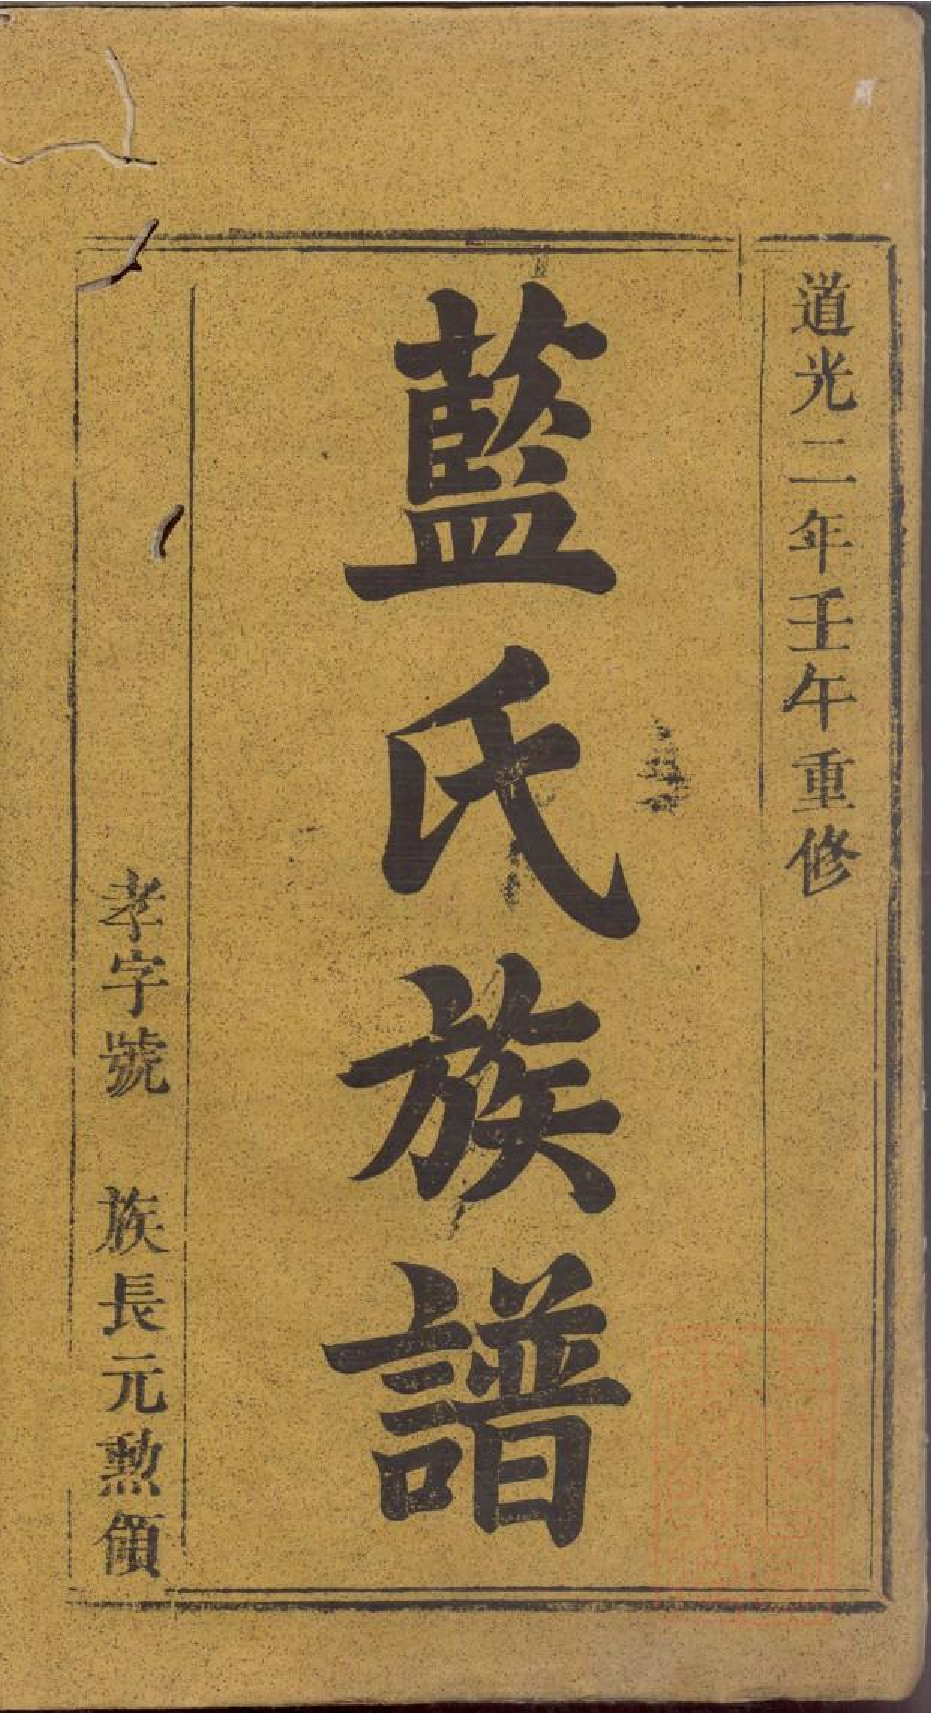 道光二年壬午重修
藍氏族譜
孝字號 族長元勲領